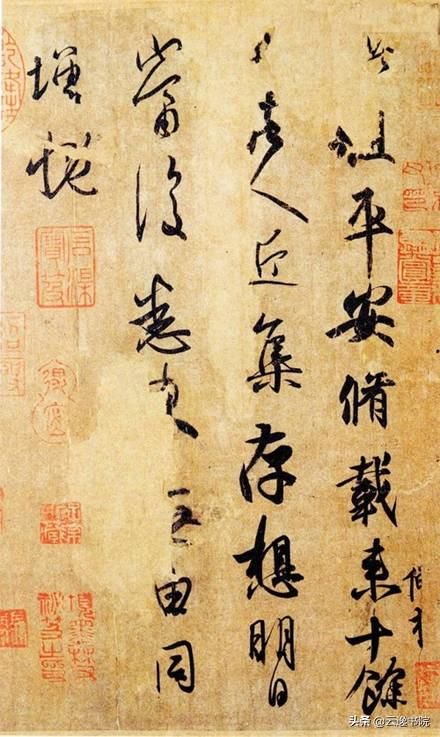 此粗平安脩載来十餘
日諸人近集存想明日
當復悉来无由同
增慨
头条 @云逸书院